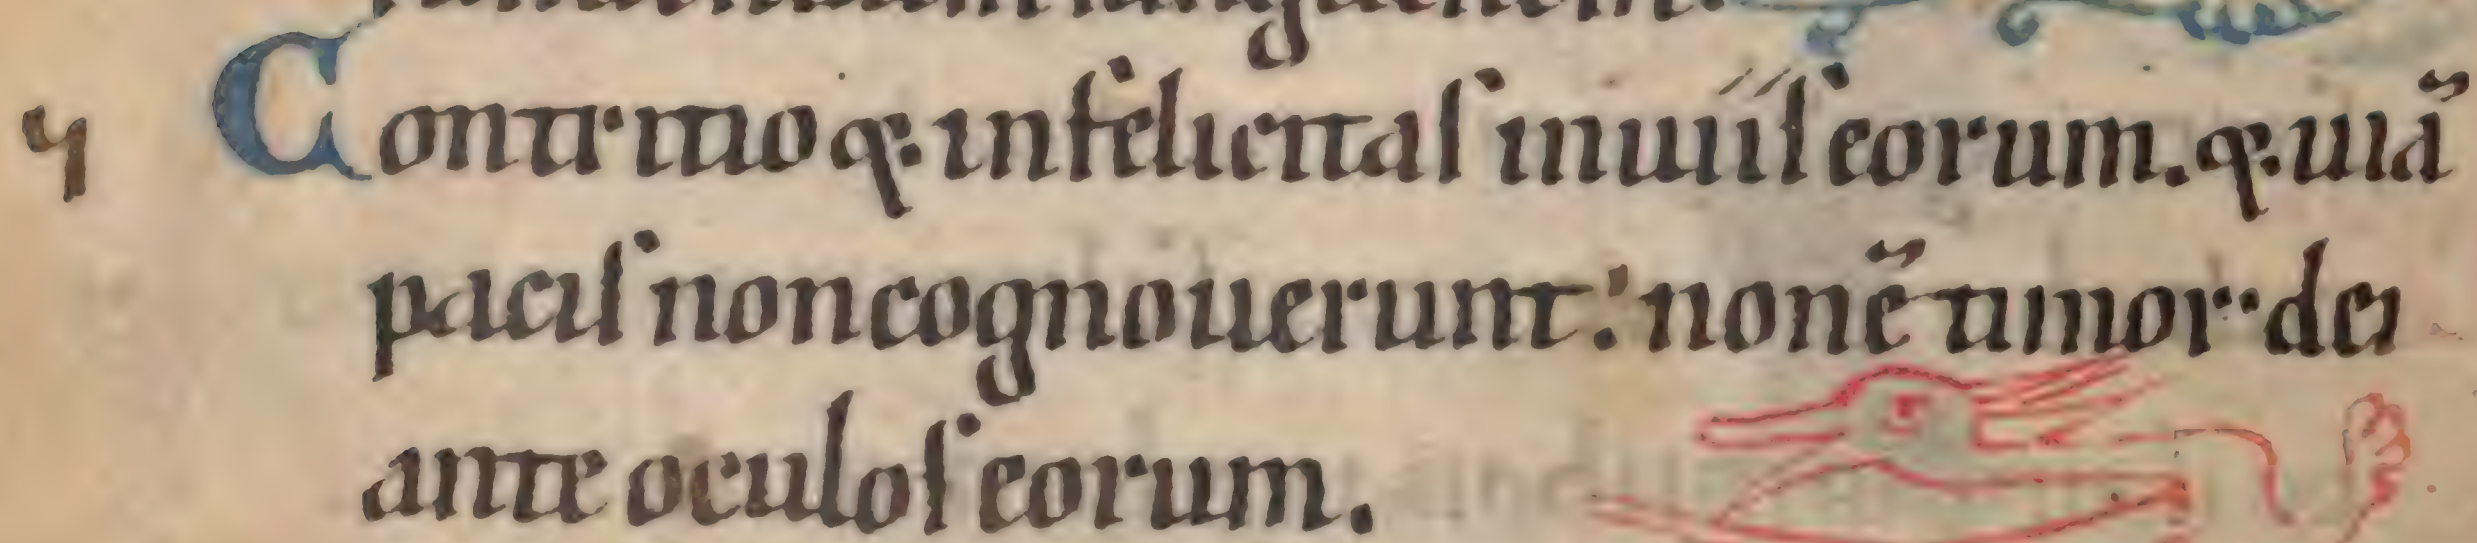 Contritio & infelicitas inuiis eorum. & uiā
pacis non cognouerunt: non ē timor dei
ante oculos eorum.